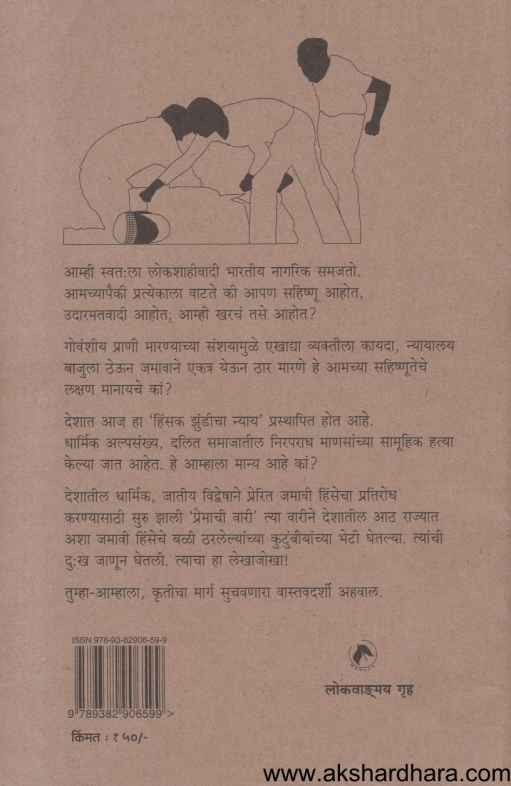 आम्ही स्वत:ला लोकशाहीवादी भारतीय नागरिक समजतो.
आमच्यापैकी प्रत्येकाला वाटते की आपण सहिष्णू आहोत,
उदारमतवादी आहोत; आम्ही खरचं तसे आहोत?
गोवंशीय प्राणी मारण्याच्या संशयामुळे एखाद्या व्यक्तीला कायदा, न्यायालय
बाजुला ठेऊन जमावाने एकत्र येऊन ठार मारणे हे आमच्या सहिष्णूतेचे
लक्षण मानायचे कां?
देशात आज हा ‘हिंसक झुंडीचा न्याय’ प्रस्थापित होत आहे.
धार्मिक अल्पसंख्य, दलित समाजातील निरपराध माणसांच्या सामूहिक हत्या
केल्या जात आहेत. हे आम्हाला मान्य आहे कां?
देशातील धार्मिक, जातीय विद्वेषाने प्रेरित जमावी हिंसेचा प्रतिरोध
करण्यासाठी सुरु झाली ‘प्रेमाची वारी’ त्या वारीने देशातील आठ राज्यात
अशा जमावी हिंसेचे बळी ठरलेल्यांच्या कुटुंबीयांच्या भेटी घेतल्या. त्यांची
दु:ख जाणून घेतली. त्याचा हा लेखाजोखा!
तुम्हा-आम्हाला, कृतीचा मार्ग सुचवणारा वास्तवदर्शी अहवाल.
ISBN 978-93-82906-59-9
9 789382 906599 >
किंमत : ₹ ५०/-
लोकवाङ्मय गृह
www.akshardhara.com